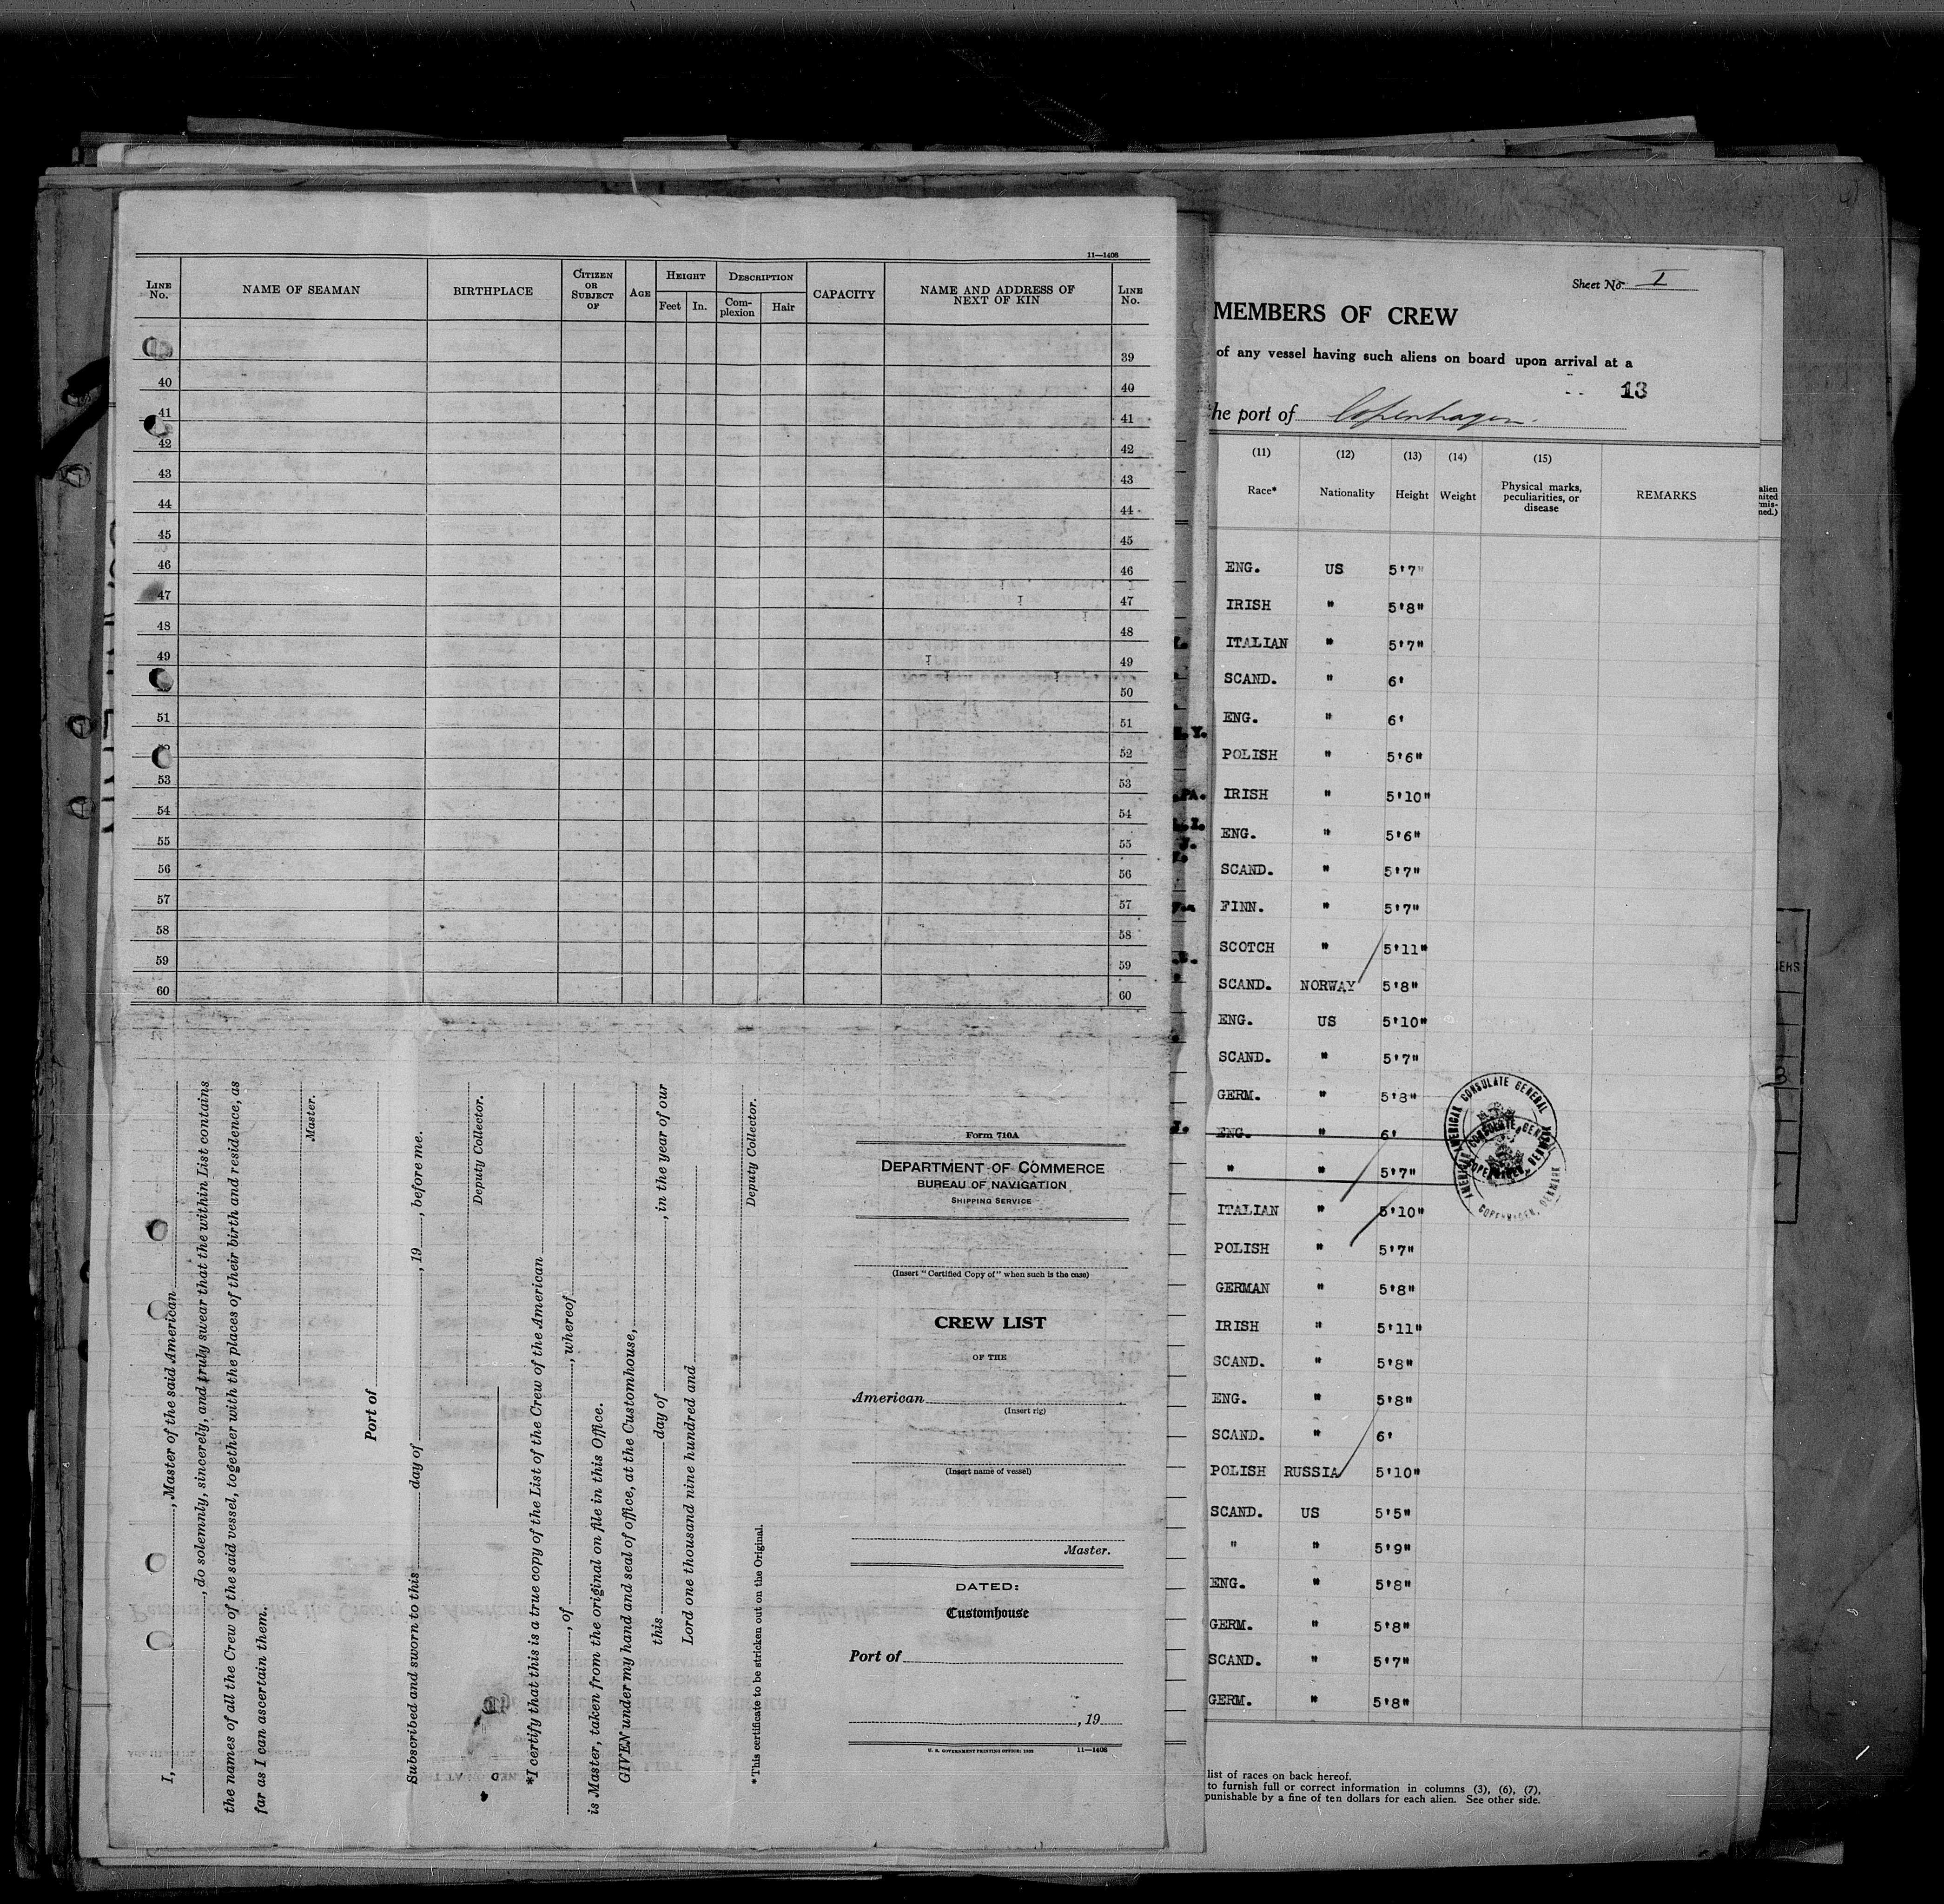 11—1408
LINE No. NAME OF SEAMAN BIRTHPLACE CITIZEN OR SUBJECT OF AGE HEIGHT Feet In. DESCRIPTION Complexion Hair CAPACITY NAME AND ADDRESS OF NEXT OF KIN LINE No.
39
40 40
41 41
42 42
43 43
44 44
45 45
46 46
47 47
48 48
49 49
50
51 51
52
53 53
54 54
55 55
56 56
57 57
58 58
59 59
60 60
I, , Master of the said American
, do solemnly, sincerely, and truly swear that the within List contains
the names of all the Crew of the said vessel, together with the places of their birth and residence, as
far as I can ascertain them.
Master.
Port of
Subscribed and sworn to this day of , 19 , before me.
Deputy Collector.
*I certify that this is a true copy of the List of the Crew of the American
, of , whereof
is Master, taken from the original on file in this Office.
GIVEN under my hand and seal of office, at the Customhouse,
this day of , in the year of our
Lord one thousand nine hundred and
Deputy Collector.
*This certificate to be stricken out on the Original.
Form 710A
DEPARTMENT OF COMMERCE
BUREAU OF NAVIGATION
SHIPPING SERVICE
(Insert "Certified Copy of" when such is the case)
CREW LIST
OF THE
American
(Insert rig)
(Insert name of vessel)
Master.
DATED:
Customhouse
Port of
, 19
U. S. GOVERNMENT PRINTING OFFICE: 11—1408
Sheet No. I
MEMBERS OF CREW
of any vessel having such aliens on board upon arrival at a
13
he port of Copenhagen.
(11) (12) (13) (14) (15)
Race* Nationality Height Weight Physical marks, peculiarities, or disease REMARKS
ENG. US 5'7"
IRISH " 5'8"
ITALIAN " 5'7"
SCAND. " 6'
ENG. " 6'
POLISH " 5'6"
IRISH " 5'10"
ENG. " 5'6"
SCAND. " 5'7"
FINN. " 5'7"
SCOTCH " 5'11"
SCAND. NORWAY 5'8"
ENG. US 5'10"
SCAND. " 5'7"
GERM. " 5'8"
ENG. " 6'
" " 5'7"
ITALIAN " 5'10"
POLISH " 5'7"
GERMAN " 5'8"
IRISH " 5'11"
SCAND. " 5'8"
ENG. " 5'8"
SCAND. " 6'
POLISH RUSSIA 5'10"
SCAND. US 5'5"
" " 5'9"
ENG. " 5'8"
GERM. " 5'8"
SCAND. " 5'7"
GERM. " 5'8"
AMERICAN CONSULATE GENERAL
COPENHAGEN, DENMARK
list of races on back hereof.
to furnish full or correct information in columns (3), (6), (7),
punishable by a fine of ten dollars for each alien. See other side.